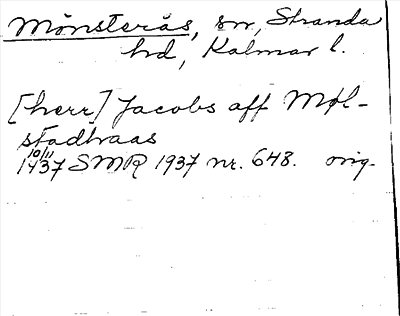 Mönsterås, sn, Stranda
hd, Kalmar l.
[herr] Jacobs aff Møl-
stadhraas
10/11
1437 SMR 1937 nr. 648. orig.